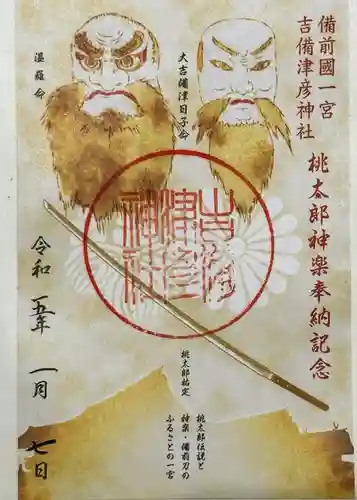 備前國一宮
吉備津彦神社
桃太郎神楽奉納記念
大吉備津日子命
温羅命
吉備
津彦
神社
桃太郎祐定
桃太郎伝説と
神楽・備前刀の
ふるさとの一宮
令和五年 一月 七日